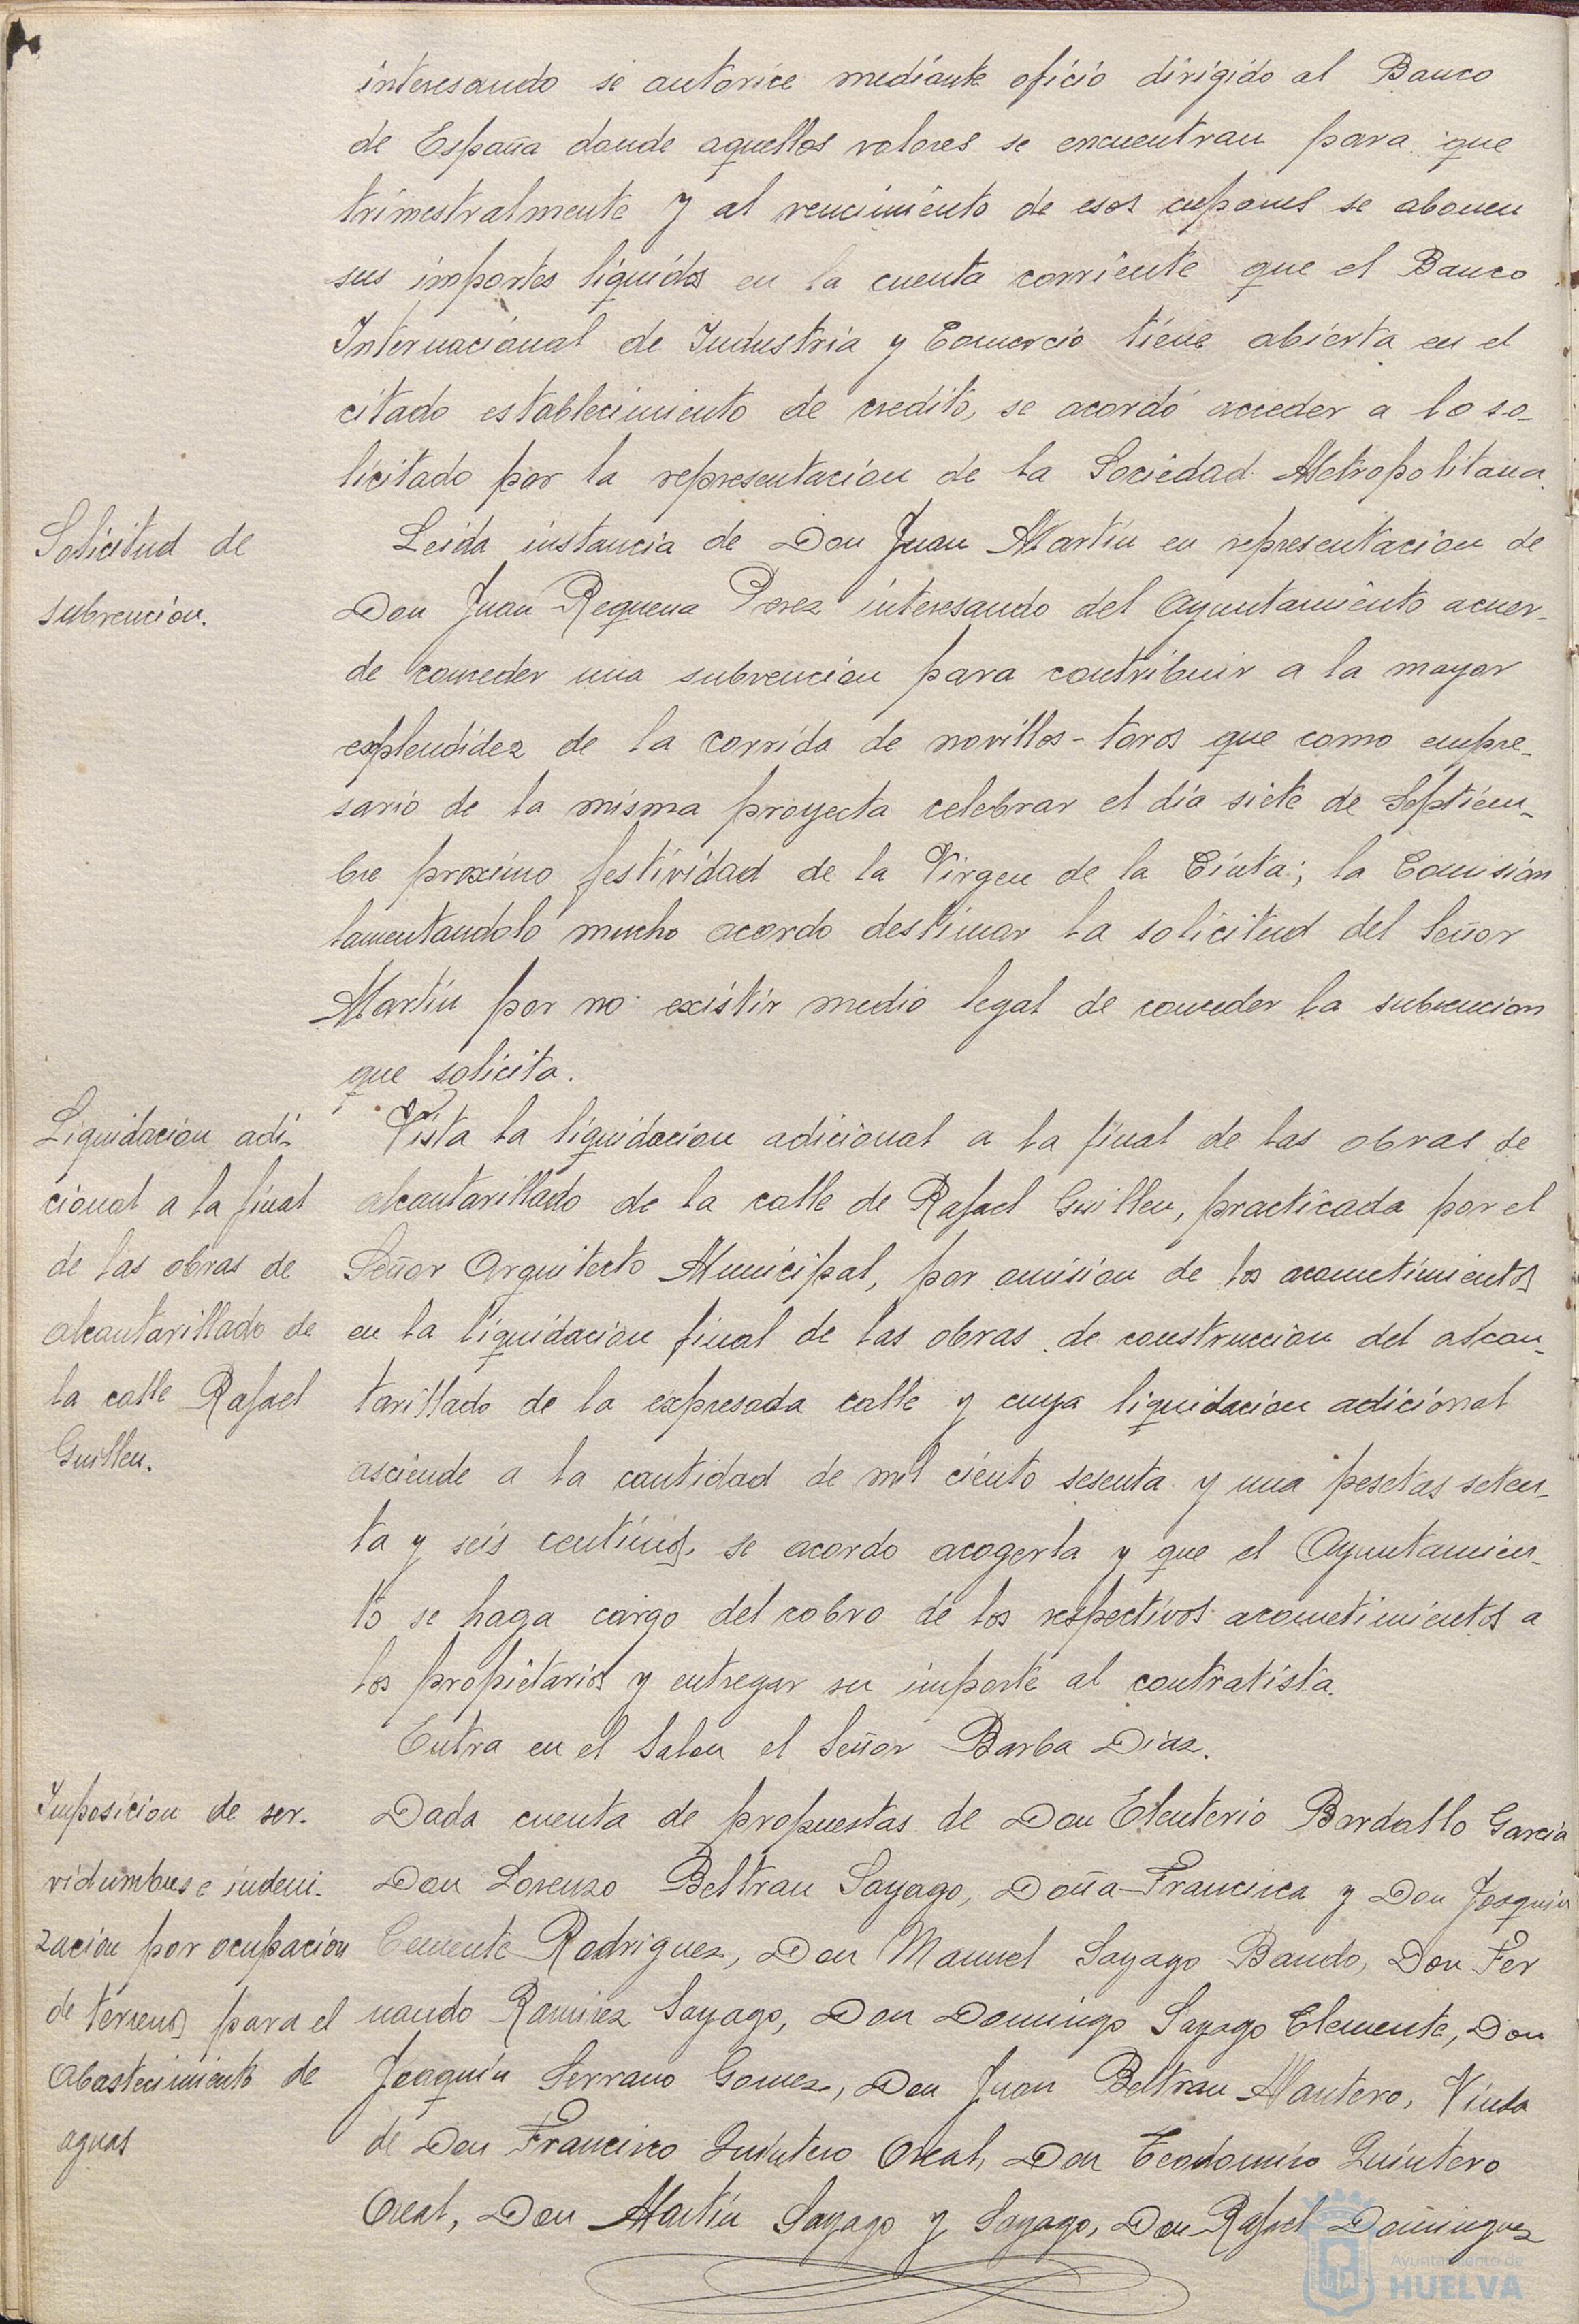 interesando se autorice mediante oficio dirigido al Banco
de España donde aquellos valores se encuentran para que
trimestralmente y al vencimiento de esos cupones se abonen
sus importes liquidos en la cuenta corriente que el Banco
Internacional de Industria y Comercio tiene abierta en el
citado establecimiento de credito, se acordó acceder a lo so-
licitado por la representacion de la Sociedad Metropolitana.
Solicitud de
subvencion.
Leida instancia de Don Juan Martin en representacion de
Don Juan Requena Perez interesando del Ayuntamiento acuer-
de conceder una subvencion para contribuir a la mayor
explendidez de la corrida de novillos-toros que como empre-
sario de la misma proyecta celebrar el dia siete de Septiem-
bre proximo festividad de la Virgen de la Cinta; la Comisión
lamentandolo mucho acordo destimar la solicitud del Señor
Martin por no existir medio legal de conceder la subvencion
que solicita.
Liquidacion adi-
cional a la final
de las obras de
alcantarillado de
la calle Rafael
Guillen.
Vista la liquidacion adicional a la final de las obras de
alcantarillado de la calle de Rafael Guillen, practicada por el
Señor Arquitecto Municipal, por omision de los acometimientos
en la liquidacion final de las obras de construccion del alcan-
tarillado de la expresada calle y cuya liquidacion adicional
asciende a la cantidad de mil ciento sesenta y una pesetas seten-
ta y seis centimos, se acordo acogerla y que el Ayuntamien-
to se haga cargo del cobro de los respectivos acometimientos a
los propietarios y entregar su importe al contratista.
Entra en el Salon el Señor Barba Diaz.
Imposicion de ser-
vidumbres e indemi-
zacion por ocupacion
de terrenos para el
Abastecimiento de
aguas
Dada cuenta de propuestas de Don Eleuterio Bardallo Garcia
Don Lorenzo Beltran Sayago, Doña Francisca y Don Joaquin
Cemente Rodriguez, Don Manuel Sayago Bando, Don Fer
nando Ramirez Sayago, Don Domingo Sayago Clemente, Don
Joaquin Serrano Gomez, Don Juan Beltran Mantero, Viuda
de Don Francisco Quintero Oreal, Don Teodomiro Quintero
Oreal, Don Martin Sayago y Sayago, Don Rafael Dominguez
Ayuntamiento de
HUELVA